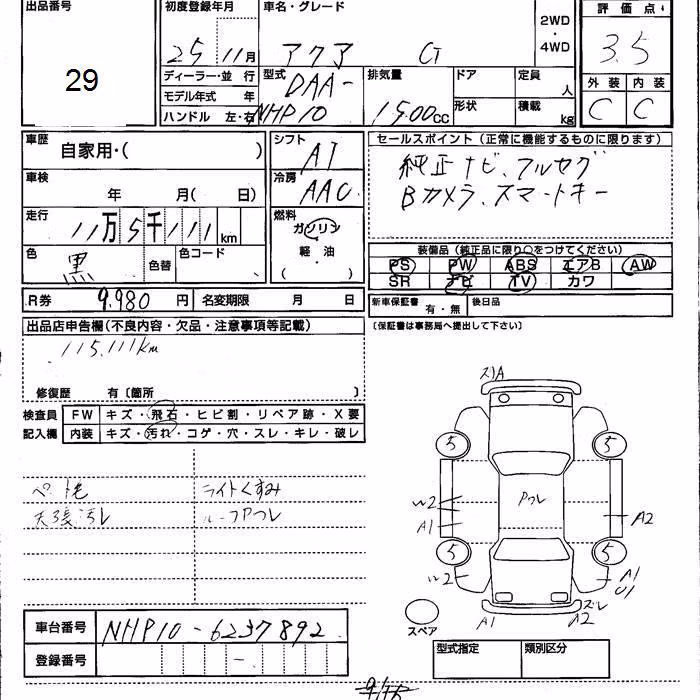 出品番号
29
初度登録年月
25 11月
車名・グレード
アクア G
2WD
・
4WD
評価点
3.5
外装 内装
C C
ディーラー・並行
モデル年式 年
ハンドル 左・右
型式
DAA-
NHP10
排気量
1500cc
ドア
形状
定員
人
積載
kg
車歴
自家用・( )
シフト
AT
セールスポイント(正常に機能するものに限ります)
純正ナビ、フルセグ
Bカメラ、スマートキー
車検
年 月( 日)
冷房
AAC
走行
11万5千111km
燃料
ガソリン
軽・油
( ・ )
色
黒
色替
色コード
装備品(純正品に限り○をつけてください)
PS PW ABS エアB AW
SR ナビ TV カワ
R券 9,980円
名変期限 月 日
新車保証書
有・無
後日品
(保証書は事務局へ提出して下さい)
出品店申告欄(不良内容・欠品・注意事項等記載)
115,111km
修復歴 有〔箇所 〕
検査員
記入欄
FW キズ・飛石・ヒビ割・リペア跡・X要
内装 キズ・汚れ・コゲ・穴・スレ・キレ・破レ
ペット毛
天張汚レ
ライトくすみ
ルーフアワレ
スリA
5 5
W2
A1
アワレ
A2
5 5
W2
A1
U1
A1
ズレ
A2
スペア
車台番号 NHP10-6237892
登録番号 -
型式指定
類別区分